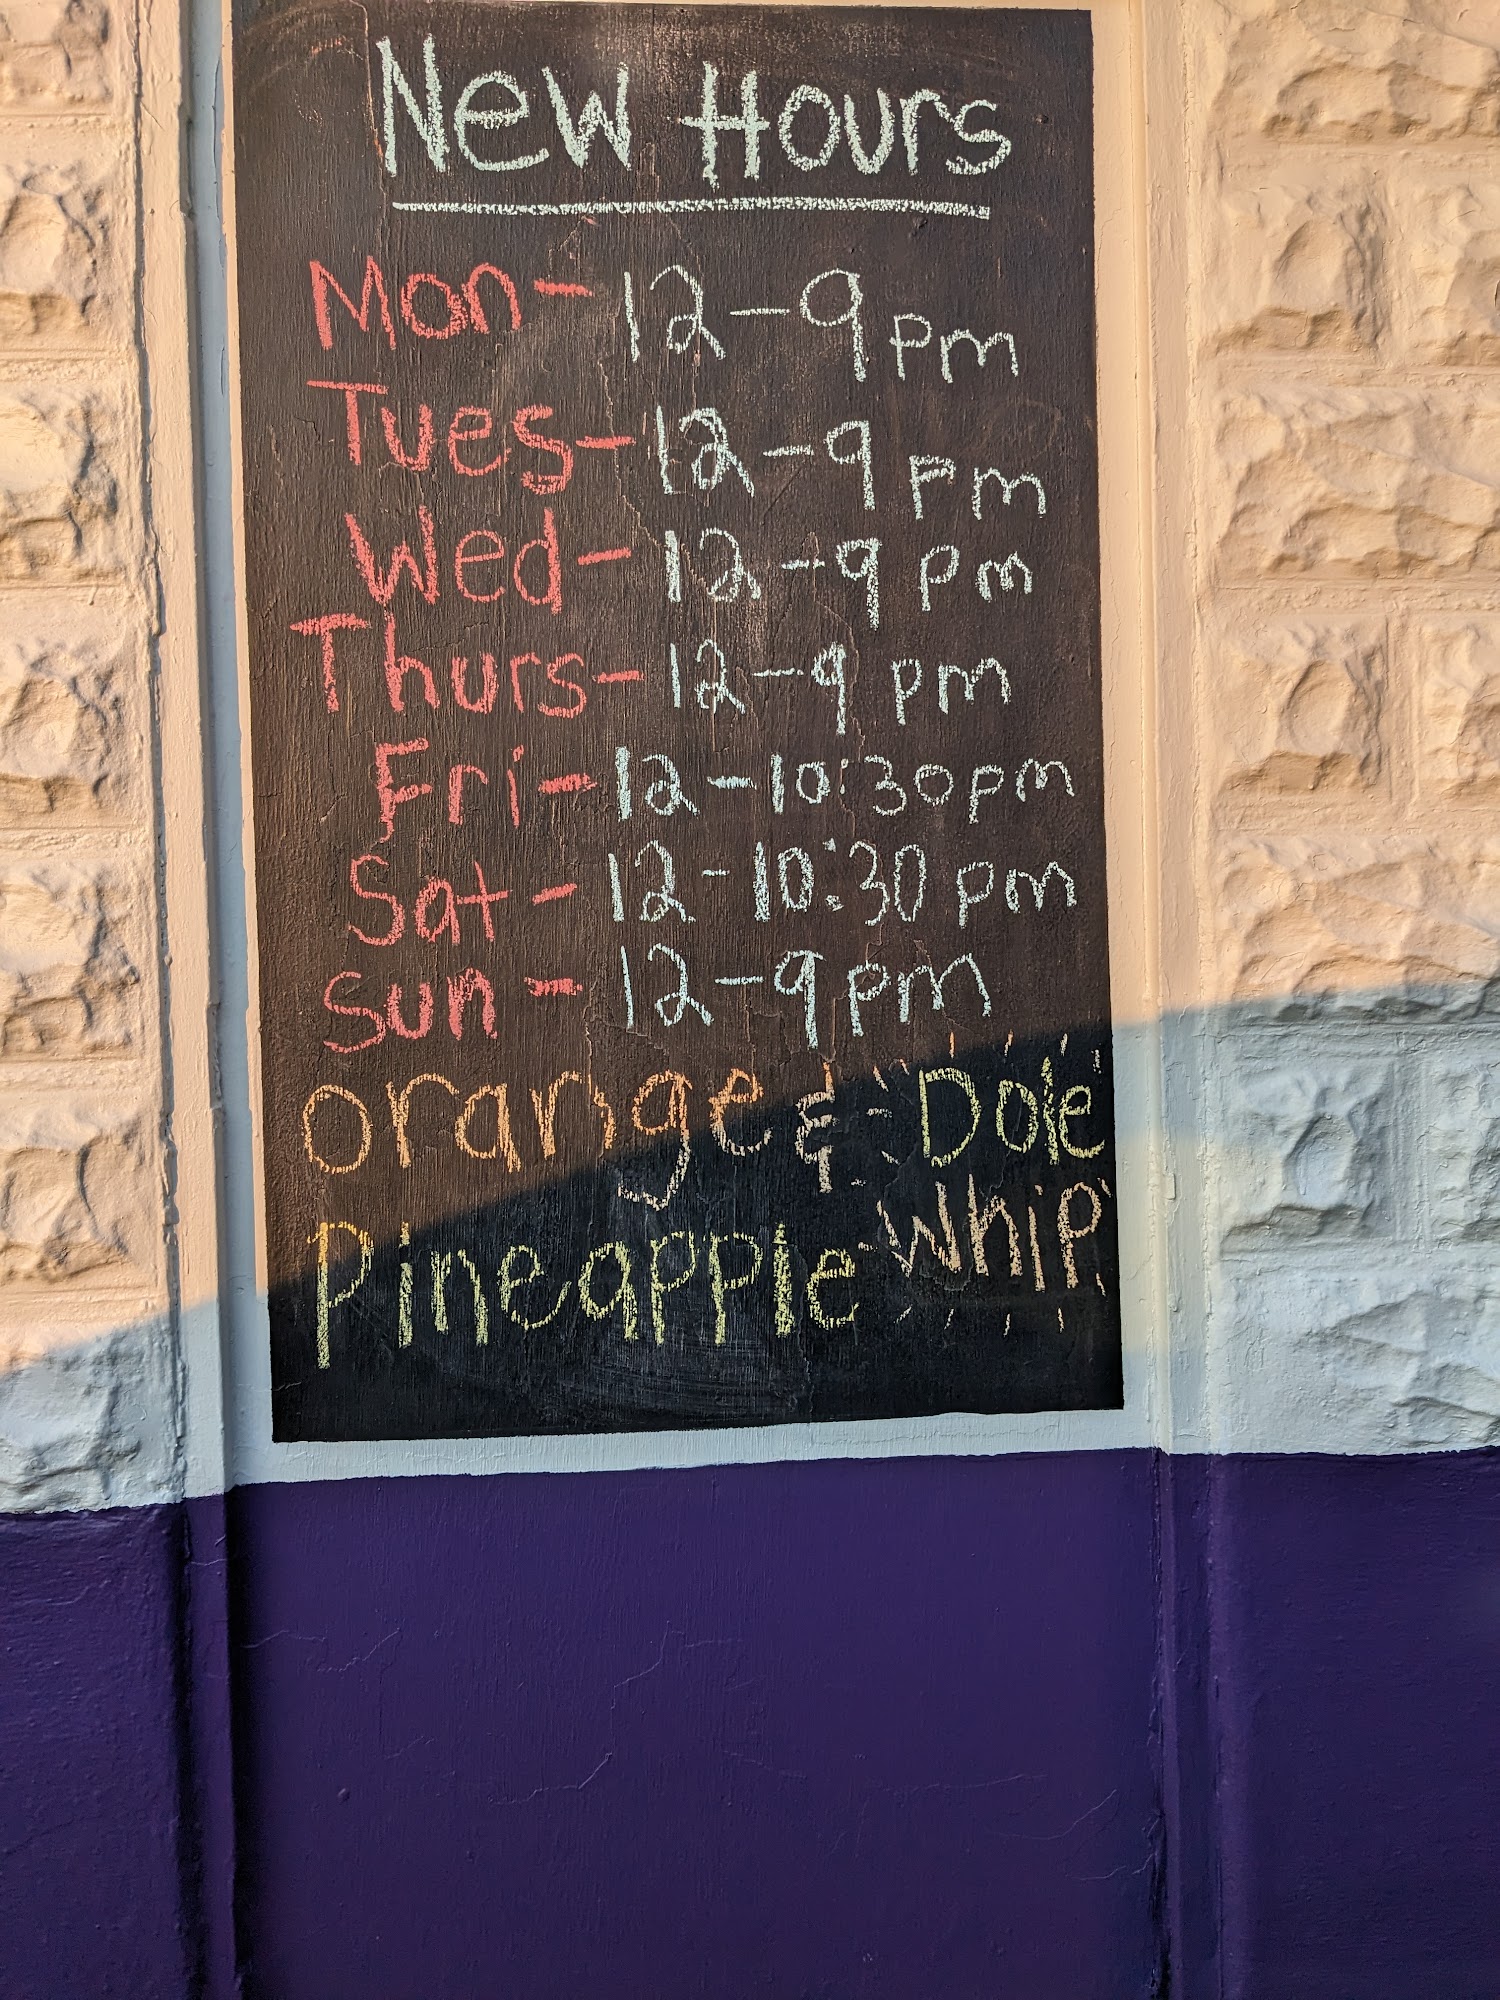 New Hours
Mon- 12-9pm
Tues- 12-9pm
Wed- 12-9pm
Thurs- 12-9pm
Fri- 12-10:30pm
Sat- 12-10:30pm
Sun- 12-9pm
orange & Dole
Pineapple Whip